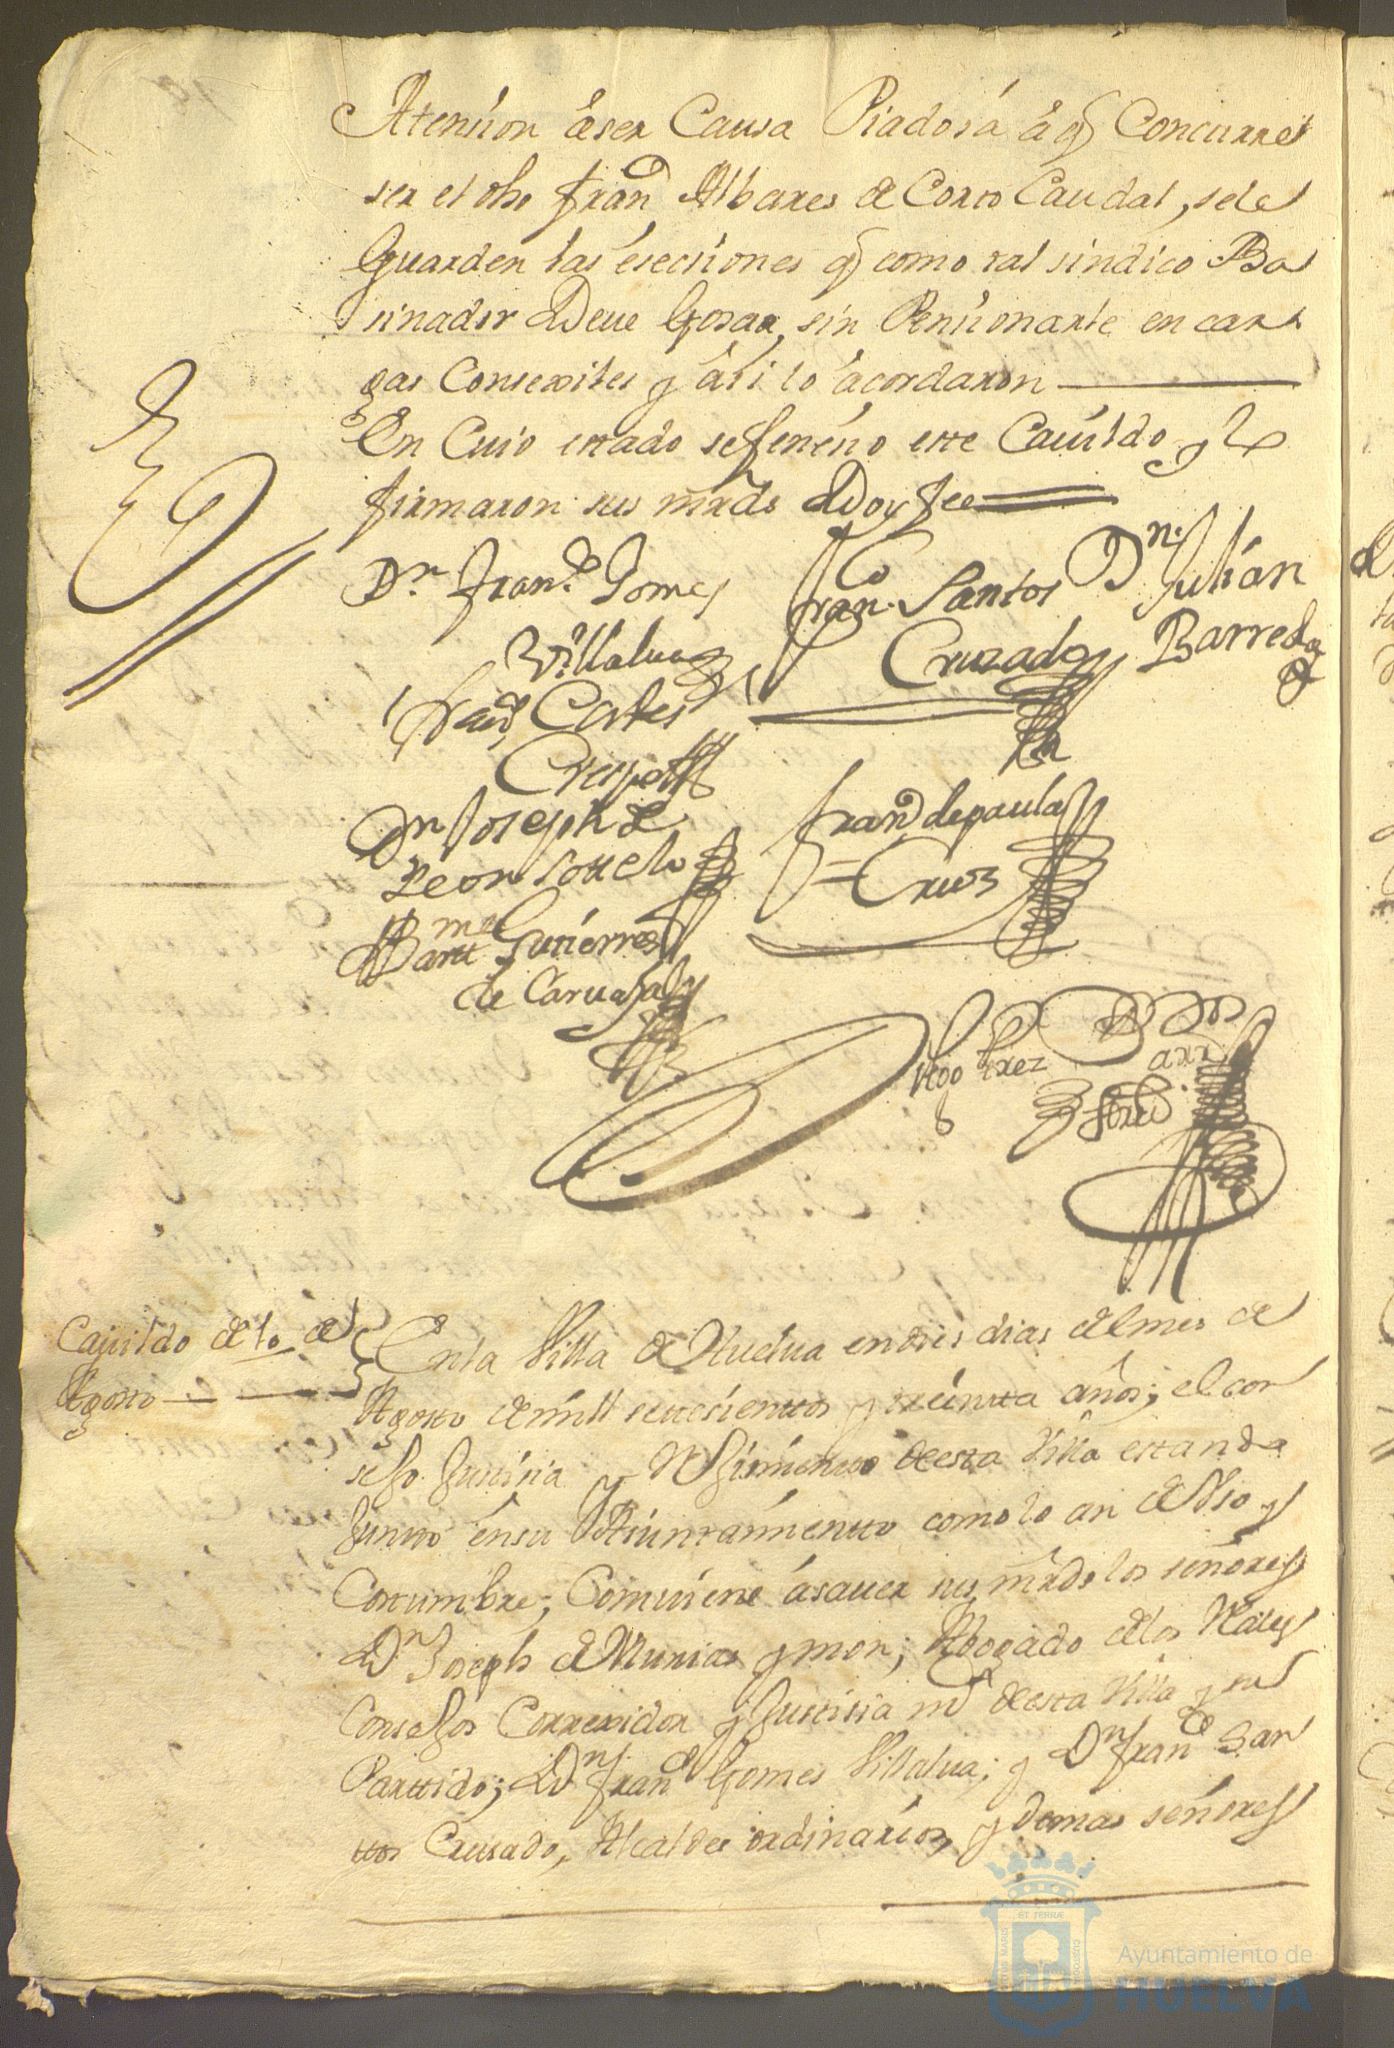 Atension a ser Causa Piadosa a q Concurre
ser el dho fran.co Albares de Corto Caudal, se le
Guarden las esecsiones q como tal sindico Ba
sinador Deue Gosar, sin Pensionarle en car
gas Consexiles y asi lo acordaron
En Cuio estado se fenesio este Cauildo y lo
firmaron sus mrds Doy fee
Dn Fran.co Gomes
Villalua
Fran.co Santos
Cruzado
Dn. Julián
Barreda
fran.co Cortes
Crespo
Dn Joseph de
Leon Sotelo
fran.co de paula
Cruz
Bartt.me Gutierres
de Caruajal
Cauildo de 10 de
Agosto
En la Villa de Huelua en dies dias del mes de
Agosto de mill settesienttos y treintta años; el con
sejo Justisia y Rejimiento de esta Villa estando
Juntto en su Aiuntamientto como lo an de Vso y
Costumbre; Comuiene a sauer sus mrds los señores
Dn Joseph de Munias y mon; Abogado de los Rales
Consejos Correxidor y Justisia mr de esta Villa y su
Parttido; Dn fran.co Gomes Villalua; y Dn fran.co San
ttos Crusado, Alcaldes ordinarios, y demas señores
Ayuntamiento de
HUELVA